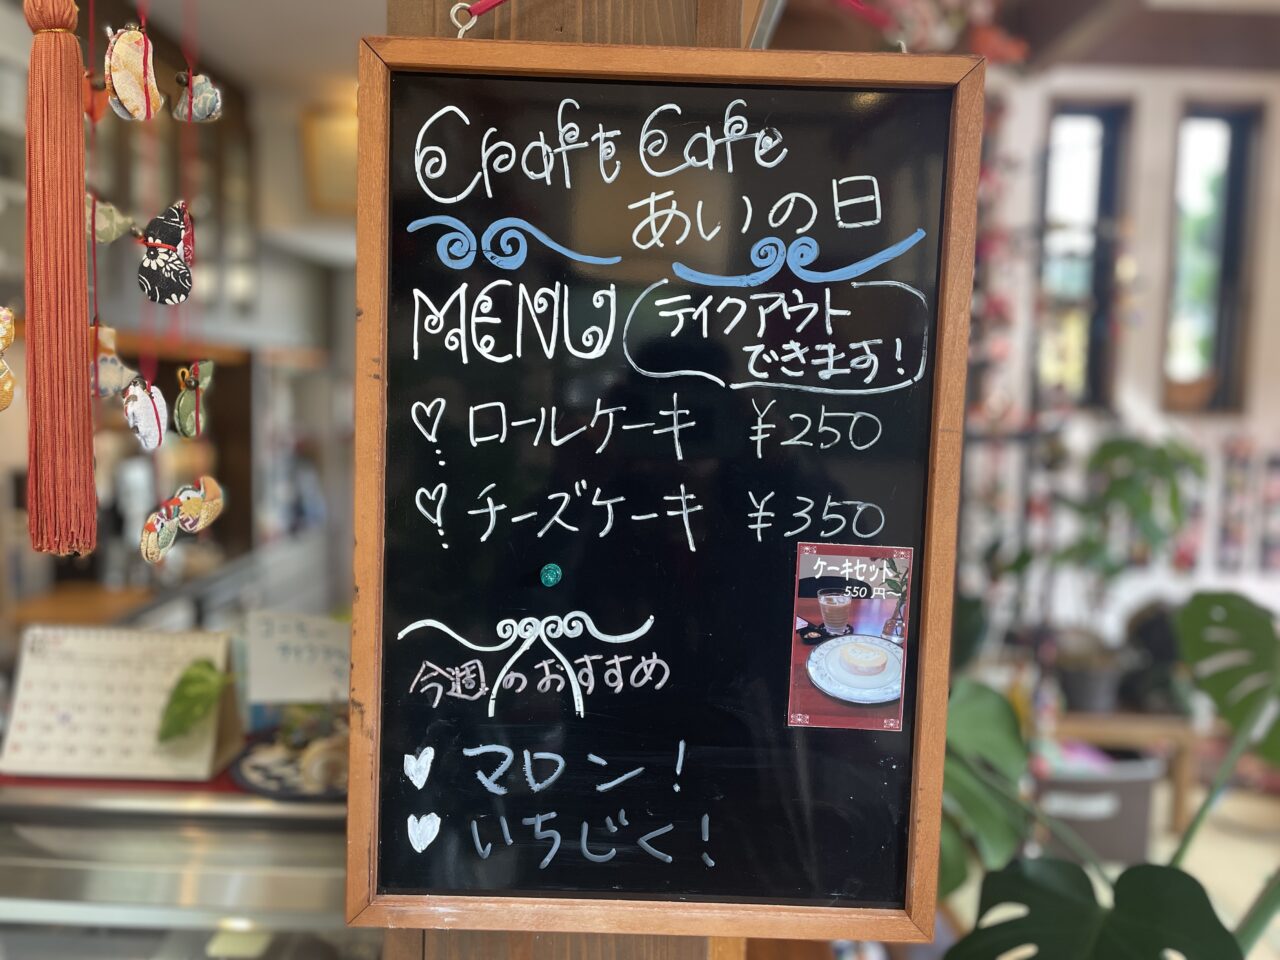 Craft Cafe
あいの日
MENU
テイクアウト
できます!
ロールケーキ ¥250
チーズケーキ ¥350
ケーキセット
550円〜
今週のおすすめ
マロン!
いちじく!